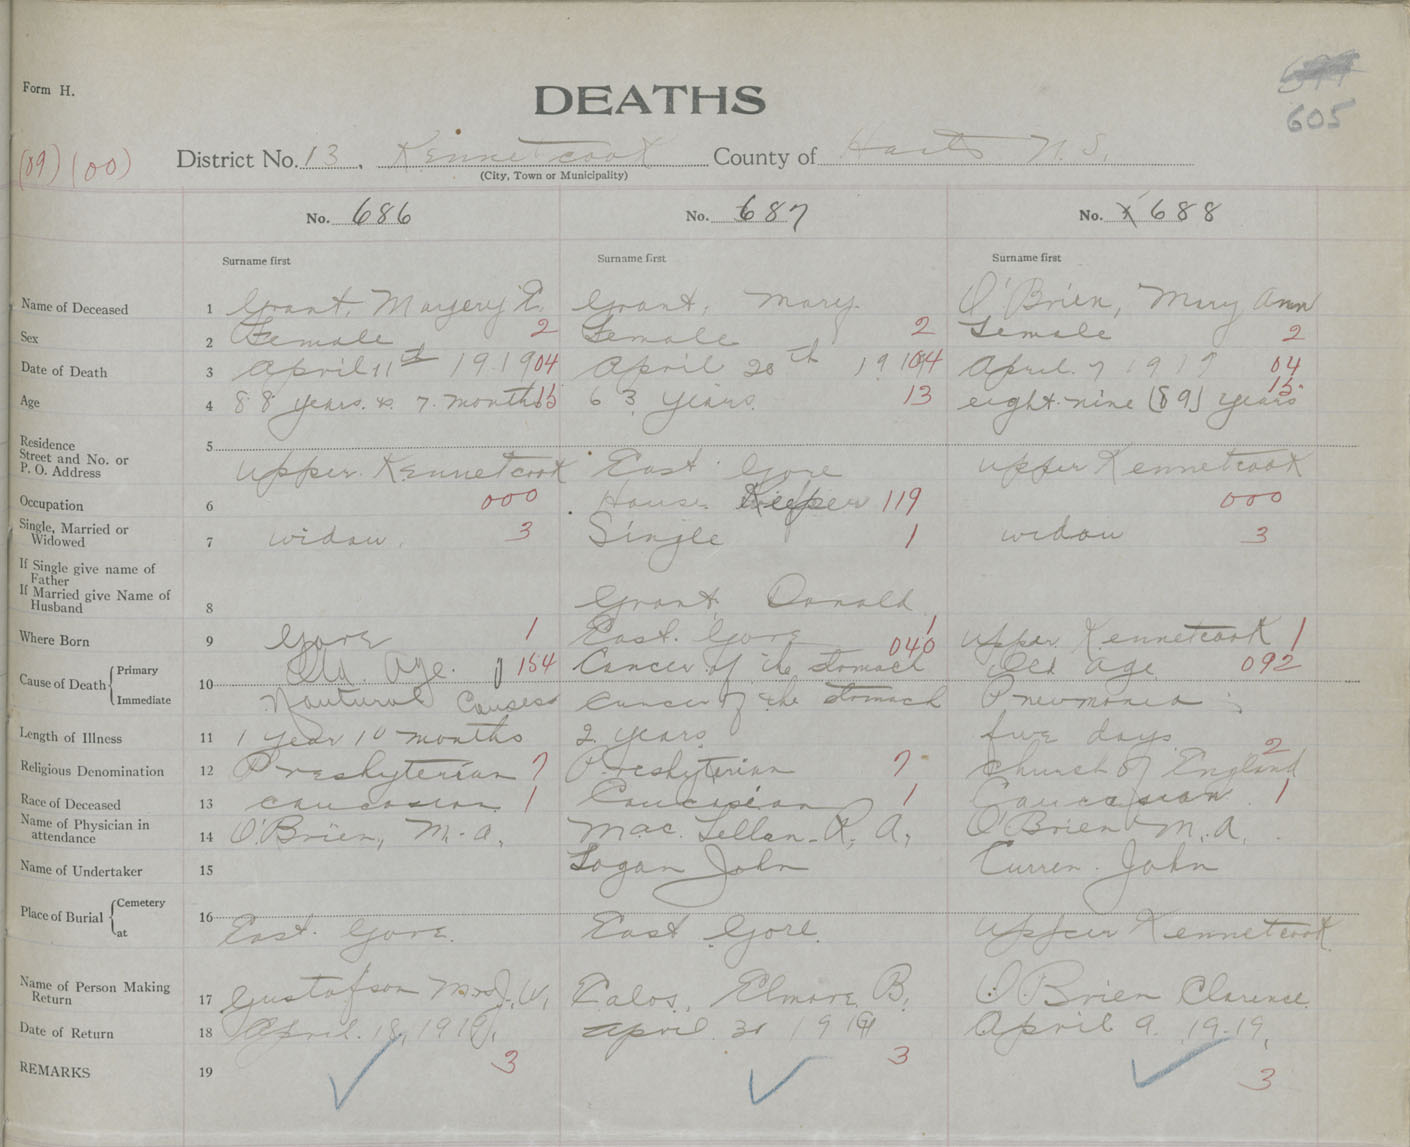 Form H.
605
DEATHS
(09) (00)
District No. 13, Kennetcook County of Hants N.S.
(City, Town or Municipality)
No. 686 No. 687 No. 688
Surname first Surname first Surname first
Name of Deceased 1 Grant, Margery E. Grant, Mary. O'Brien, Mary Ann
Sex 2 Female 2 Female 2 Female 2
Date of Death 3 April 11th 1919 04 April 20th 19 04 April 7 1919 04
Age 4 88 years & 7 months 15 63 years 13 eight-nine (89) years 15
Residence
Street and No. or
P. O. Address 5 Upper Kennetcook East Gore Upper Kennetcook
Occupation 6 000 House Keeper 119 000
Single, Married or
Widowed 7 widow. 3 Single 1 widow 3
If Single give name of
Father
If Married give Name of
Husband 8 Grant, Donald
Where Born 9 Gore 1 East Gore 1 Upper Kennetcook 1
Cause of Death Primary 10 Old Age. 154 Cancer of the stomach 040 Old Age 092
Immediate Nautural Causes cancer of the stomach Pneumonia
Length of Illness 11 1 year 10 months 2 years five days
Religious Denomination 12 Presbyterian 7 Presbyterian 7 Church of England 2
Race of Deceased 13 caucasian 1 Caucasian 1 Caucasian 1
Name of Physician in
attendance 14 O'Brien, M. A. MacLellan, R. A. O'Brien M. A.
Name of Undertaker 15 Logan John Curren John
Place of Burial Cemetery 16
at East Gore East Gore Upper Kennetcook
Name of Person Making
Return 17 Gustafson Mrs J. W. Elmore B. O'Brien Clarence
Date of Return 18 April 18, 1919, April 30 1919 April 9 1919,
REMARKS 19 3 3 3